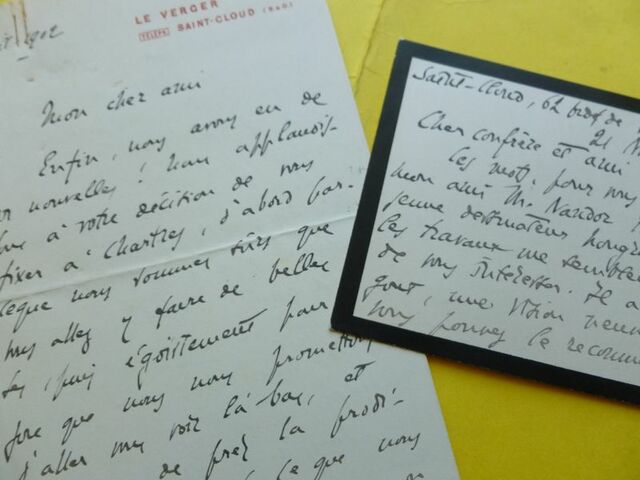 LE VERGER
TÉLÉPH. SAINT-CLOUD
Mon cher ami
Enfin, nous avons eu de
nouvelles! Nous applaudis-
à votre décision de vous
fixer à Chartres, d'abord par-
ceque nous sommes sûrs que
vous allez y faire de belles
puis égoïstement pour
que nous nous promettons
d'aller vous voir là-bas, et
de près la prodi-
ce que nous
de
Saint-Cloud, 62 de
21 N
Cher confrère et ami
Ces mots, pour vous
mon ami M. Nandor
jeune dessinateur hongr
les travaux me semble
de vous intéresser. Il a
gout, une vision
vous pouvez le recomm